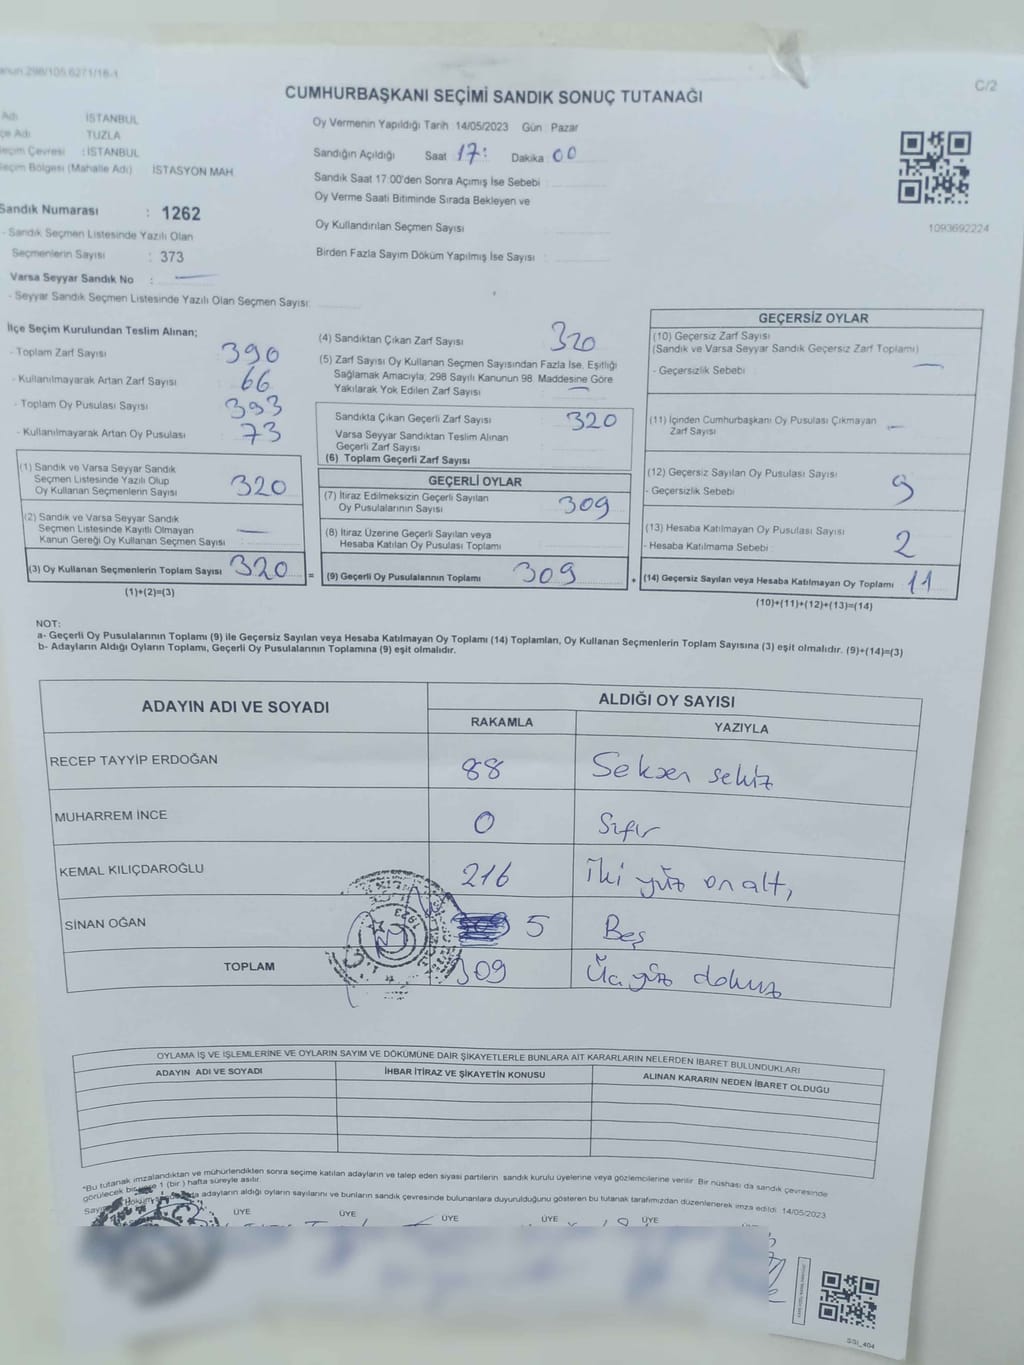 anun.298/105.6271/16-1
C/2
CUMHURBAŞKANI SEÇİMİ SANDIK SONUÇ TUTANAĞI
Adı İSTANBUL
çe Adı TUZLA
eçim Çevresi : İSTANBUL
eçim Bölgesi (Mahalle Adı) İSTASYON MAH.
Sandık Numarası : 1262
- Sandık Seçmen Listesinde Yazılı Olan
Seçmenlerin Sayısı : 373
Varsa Seyyar Sandık No : —
- Seyyar Sandık Seçmen Listesinde Yazılı Olan Seçmen Sayısı:
Oy Vermenin Yapıldığı Tarih : 14/05/2023 Gün : Pazar
Sandığın Açıldığı Saat 17: Dakika 00
Sandık Saat 17:00'den Sonra Açımış İse Sebebi :
Oy Verme Saati Bitiminde Sırada Bekleyen ve
Oy Kullandırılan Seçmen Sayısı :
Birden Fazla Sayım Döküm Yapılmış İse Sayısı :
1093692224
İlçe Seçim Kurulundan Teslim Alınan;
- Toplam Zarf Sayısı 390
- Kullanılmayarak Artan Zarf Sayısı 66
- Toplam Oy Pusulası Sayısı 393
- Kullanılmayarak Artan Oy Pusulası 73
(1) Sandık ve Varsa Seyyar Sandık
Seçmen Listesinde Yazılı Olup
Oy Kullanan Seçmenlerin Sayısı 320
(2) Sandık ve Varsa Seyyar Sandık
Seçmen Listesinde Kayıtlı Olmayan
Kanun Gereği Oy Kullanan Seçmen Sayısı : —
(3) Oy Kullanan Seçmenlerin Toplam Sayısı 320 =
(1)+(2)=(3)
(4) Sandıktan Çıkan Zarf Sayısı 320
(5) Zarf Sayısı Oy Kullanan Seçmen Sayısından Fazla İse, Eşitliği
Sağlamak Amacıyla; 298 Sayılı Kanunun 98. Maddesine Göre
Yakılarak Yok Edilen Zarf Sayısı : —
Sandıkta Çıkan Geçerli Zarf Sayısı 320
Varsa Seyyar Sandıktan Teslim Alınan
Geçerli Zarf Sayısı
(6) Toplam Geçerli Zarf Sayısı
GEÇERLİ OYLAR
(7) İtiraz Edilmeksizin Geçerli Sayılan
Oy Pusulalarının Sayısı 309
(8) İtiraz Üzerine Geçerli Sayılan veya
Hesaba Katılan Oy Pusulası Toplamı
(9) Geçerli Oy Pusulalarının Toplamı 309 +
GEÇERSİZ OYLAR
(10) Geçersiz Zarf Sayısı
(Sandık ve Varsa Seyyar Sandık Geçersiz Zarf Toplamı)
- Geçersizlik Sebebi : —
(11) İçinden Cumhurbaşkanı Oy Pusulası Çıkmayan
Zarf Sayısı —
(12) Geçersiz Sayılan Oy Pusulası Sayısı 9
- Geçersizlik Sebebi :
(13) Hesaba Katılmayan Oy Pusulası Sayısı 2
- Hesaba Katılmama Sebebi :
(14) Geçersiz Sayılan veya Hesaba Katılmayan Oy Toplamı 11
(10)+(11)+(12)+(13)=(14)
NOT:
a- Geçerli Oy Pusulalarının Toplamı (9) ile Geçersiz Sayılan veya Hesaba Katılmayan Oy Toplamı (14) Toplamları, Oy Kullanan Seçmenlerin Toplam Sayısına (3) eşit olmalıdır. (9)+(14)=(3)
b- Adayların Aldığı Oyların Toplamı, Geçerli Oy Pusulalarının Toplamına (9) eşit olmalıdır.
ADAYIN ADI VE SOYADI ALDIĞI OY SAYISI
RAKAMLA YAZIYLA
RECEP TAYYİP ERDOĞAN 88 Seksen sekiz
MUHARREM İNCE 0 Sıfır
KEMAL KILIÇDAROĞLU 216 İki yüz on altı
SİNAN OĞAN 5 Beş
TOPLAM 309 Üç yüz dokuz
OYLAMA İŞ VE İŞLEMLERİNE VE OYLARIN SAYIM VE DÖKÜMÜNE DAİR ŞİKAYETLERLE BUNLARA AİT KARARLARIN NELERDEN İBARET BULUNDUKLARI
ADAYIN ADI VE SOYADI İHBAR İTİRAZ VE ŞİKAYETİN KONUSU ALINAN KARARIN NEDEN İBARET OLDUĞU
*Bu tutanak imzalandıktan ve mühürlendikten sonra seçime katılan adayların ve talep eden siyasi partilerin sandık kurulu üyelerine veya gözlemcilerine verilir. Bir nüshası da sandık çevresinde
görülecek bir yere 1 (bir) hafta süreyle asılır.
adayların aldığı oyların sayılarını ve bunların sandık çevresinde bulunanlara duyurulduğunu gösteren bu tutanak tarafımızdan düzenlenerek imza edildi. 14/05/2023
ÜYE ÜYE ÜYE ÜYE ÜYE